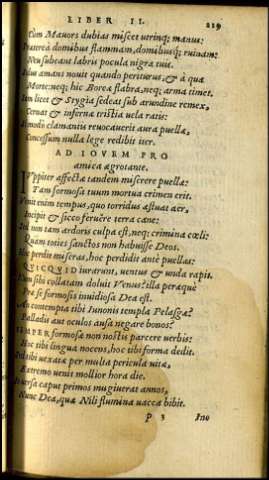 LIBER II. 229
Cum Mavors dubias miscet utrinq; manus:
Præterea domibus flammam, domibusq; ruinam:
Neu subeant labris pocula nigra tuis.
Solus amans novit quando periturus, & à qua
Morte: neq; hic Boreæ flabra, neq; arma timet.
Iam licet & Stygia sedeat sub arundine remex,
Cernat & infernæ tristia vela ratis:
Si modò clamantis revocaverit aura puellæ,
Concessum nulla lege redibit iter.
AD IOVEM PRO
amica ægrotante.
IVppiter affectæ tandem miserere puellæ:
Tam formosa tuum mortua crimen erit.
Venit enim tempus, quo torridus æstuat aër,
Incipit & sicco fervêre terra cane:
Sed non tam ardoris culpa est, neq; crimina cœli:
Quàm toties sanctos non habuisse Deos.
Hoc perdit miseras, hoc perdidit antè puellas:
QVICQVID iurarunt, ventus & unda rapit.
Num sibi collatam doluit Venus? illa peræquè
Præ se formosis invidiosa Dea est.
An contempta tibi Iunonis templa Pelasgæ?
Palladis aut oculos ausa negare bonos?
SEMPER formosæ non nostis parcere verbis:
Hoc tibi lingua nocens, hoc tibi forma dedit.
Sed tibi vexatæ per multa pericula vitæ,
Extremo venit mollior hora die.
Io versa caput primos mugiverat annos,
Nunc Dea, quæ Nili flumina vacca bibit.
P 3 Ino